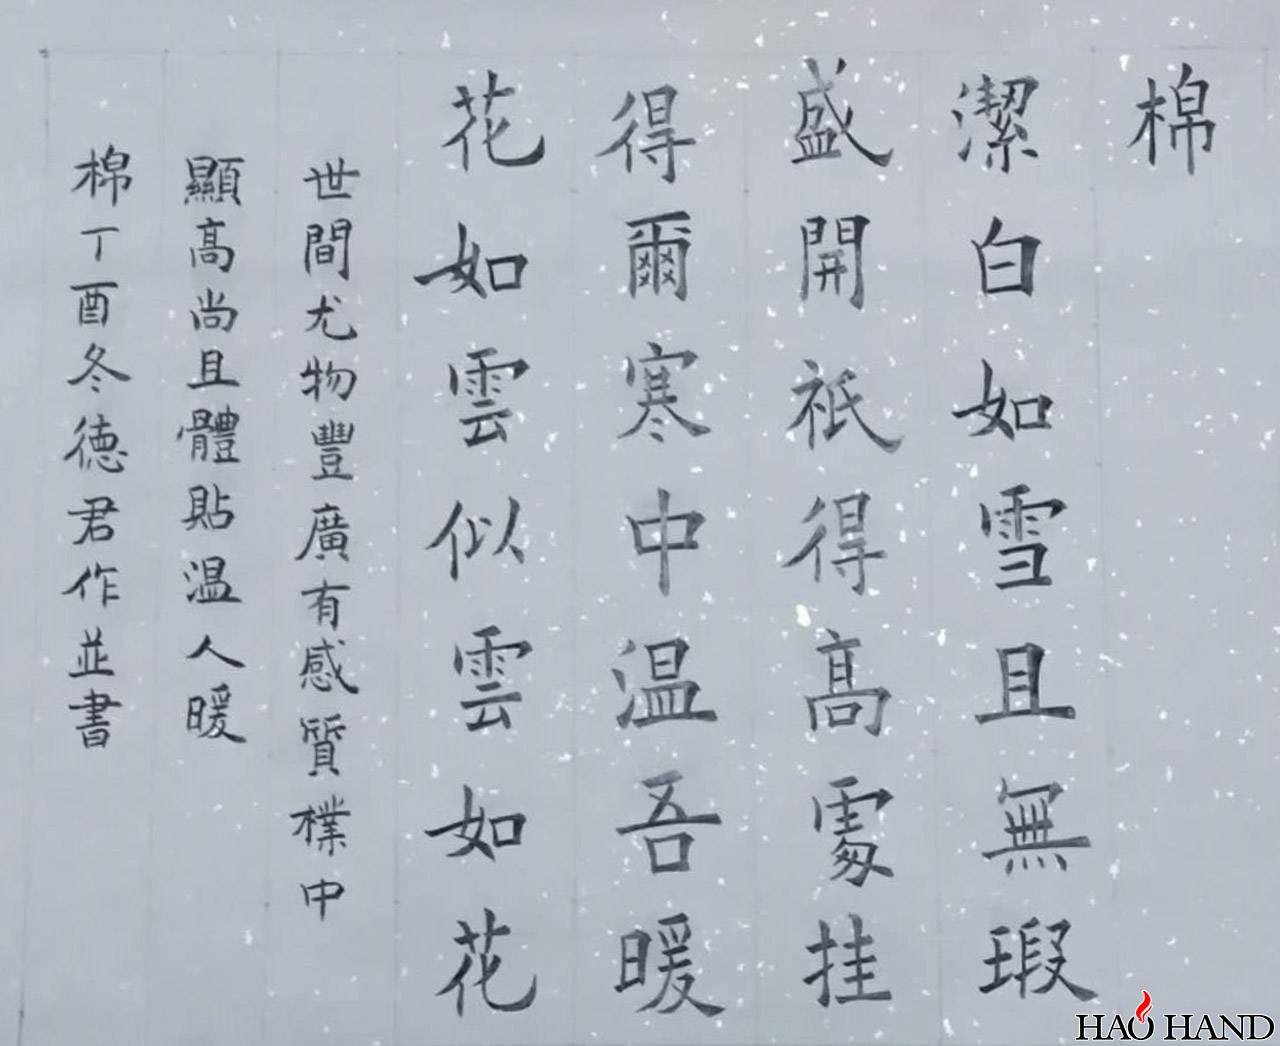 棉
潔白如雪且無瑕
盛開祇得高處挂
得爾寒中温吾暖
花如雲似雲如花
世間尤物豐廣有感質樸中
顯高尚且體貼温人暖
棉丁酉冬德君作並書
HAO HAND